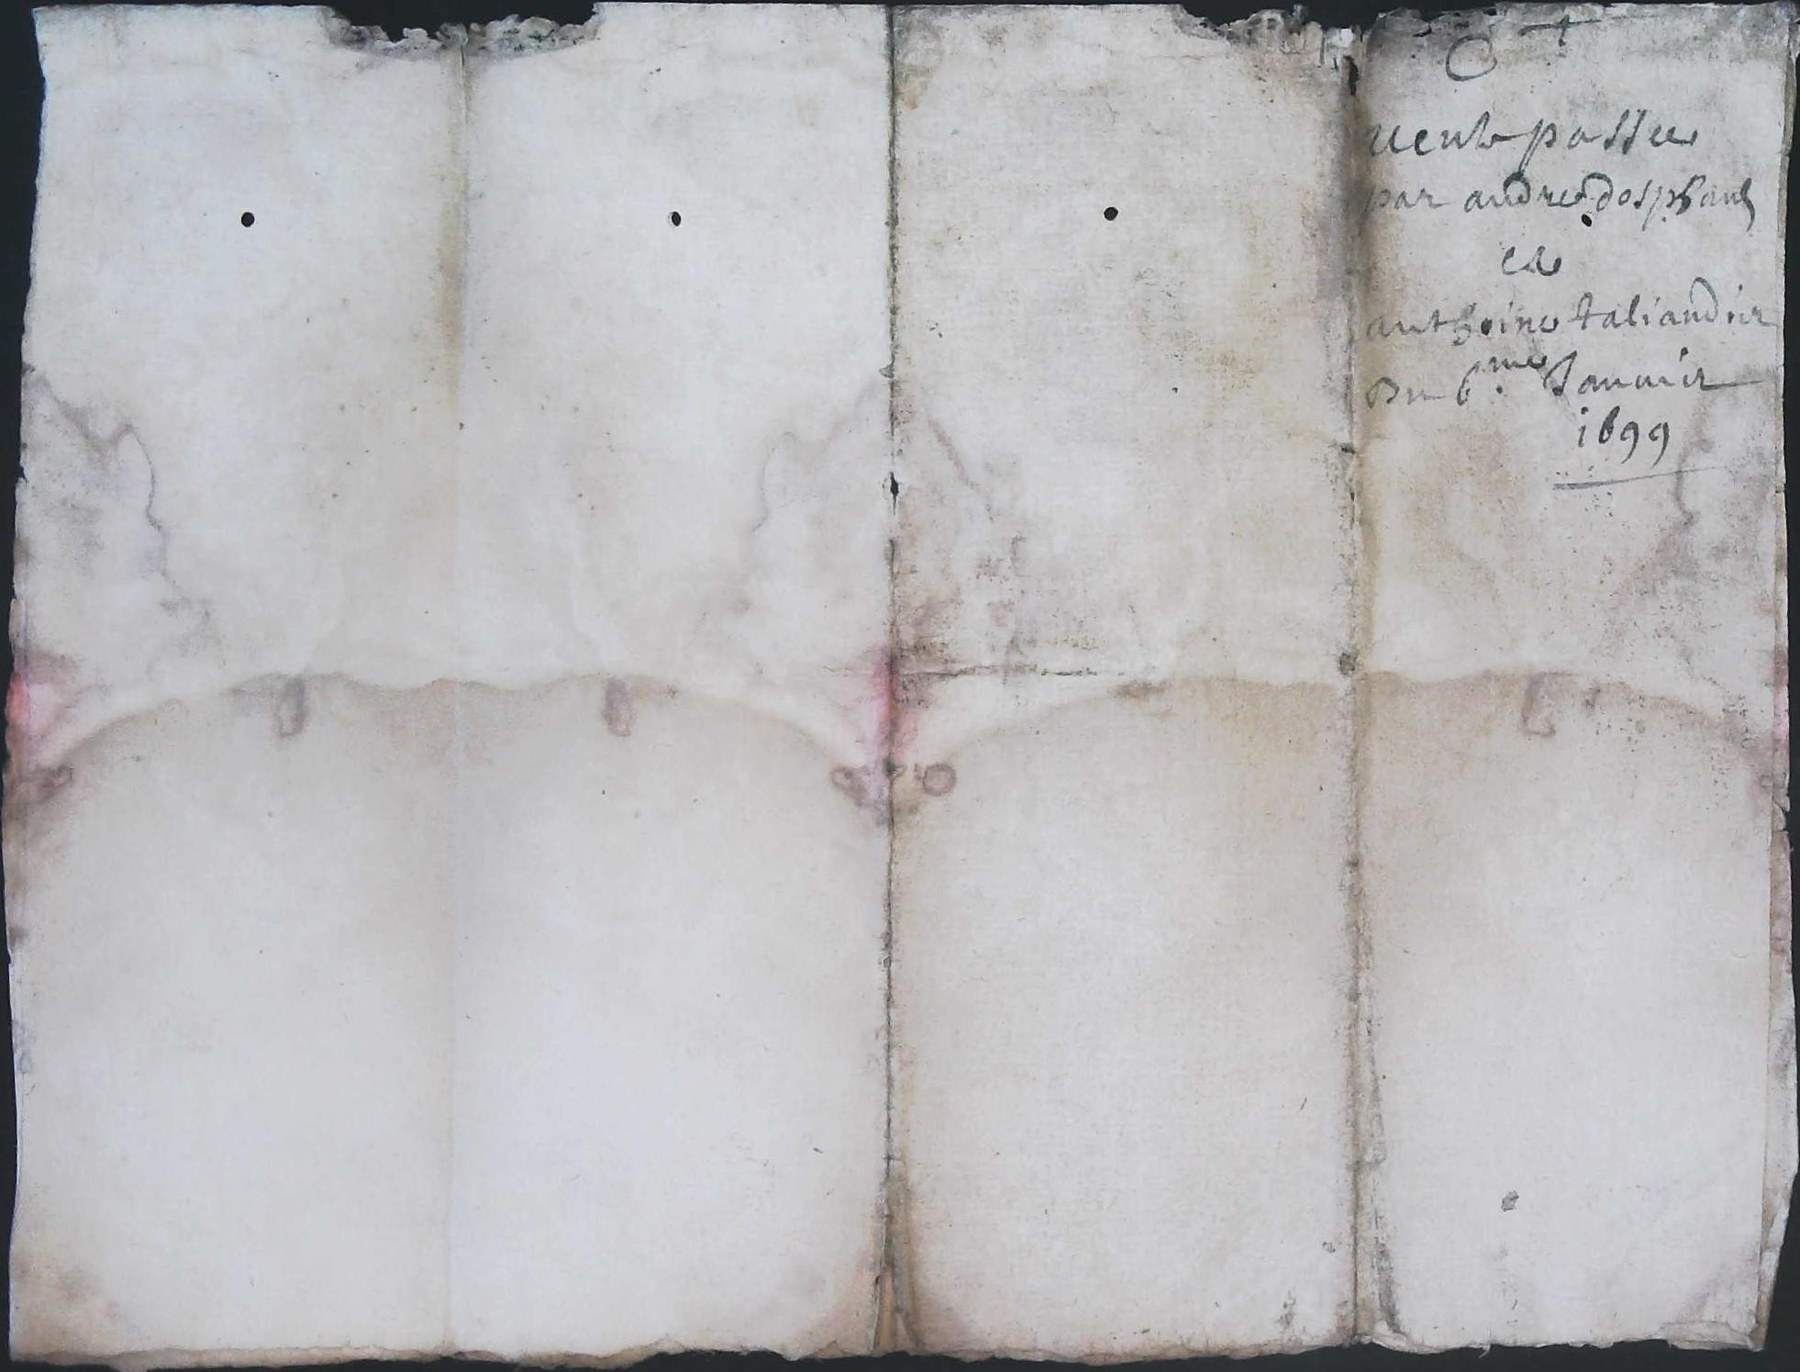 C
uente passee
par andre
et
anthoine taliandier
Du 6.me Januier
1699